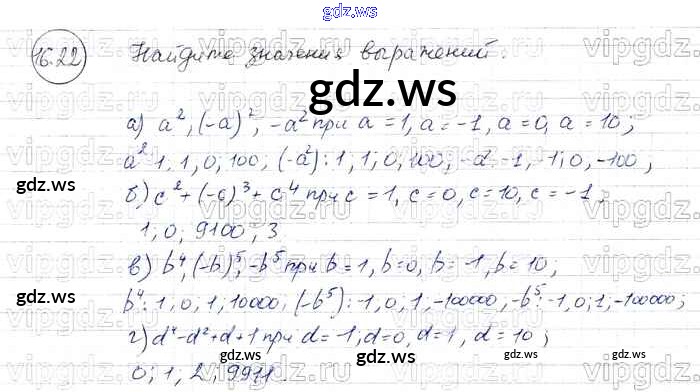 gdz.ws
16.22 Найдите значения выражений:
gdz.ws
а) a², (-a)², -a² при a = 1, a = -1, a = 0, a = 10;
a² 1, 1, 0, 100, (-a²): 1, 1; 0, 100, -a² -1, -1; 0, -100;
gdz.ws gdz.ws
б) c² + (-c)³ + c⁴ при c = 1, c = 0, c = 10, c = -1;
1, 0; 9100; 3
в) b⁴, (-b)⁵, -b⁵ при b = 1, b = 0, b = -1, b = 10;
gdz.ws gdz.ws
b⁴: 1, 0, 1, 10000; (-b⁵): -1, 0, 1, -100000, -b⁵: -1, 0; 1, -100000;
г) d⁴ - d² + d + 1 при d = -1, d = 0, d = 1, d = 10;
gdz.ws gdz.ws
0; 1, 2, 9911.
gdz.ws